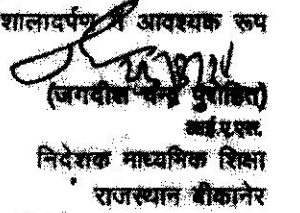 शालादर्पण में आवश्यक रूप
(जगदीश चन्द्र पुरोहित)
आई.ए.एस.
निदेशक माध्यमिक शिक्षा
राजस्थान बीकानेर